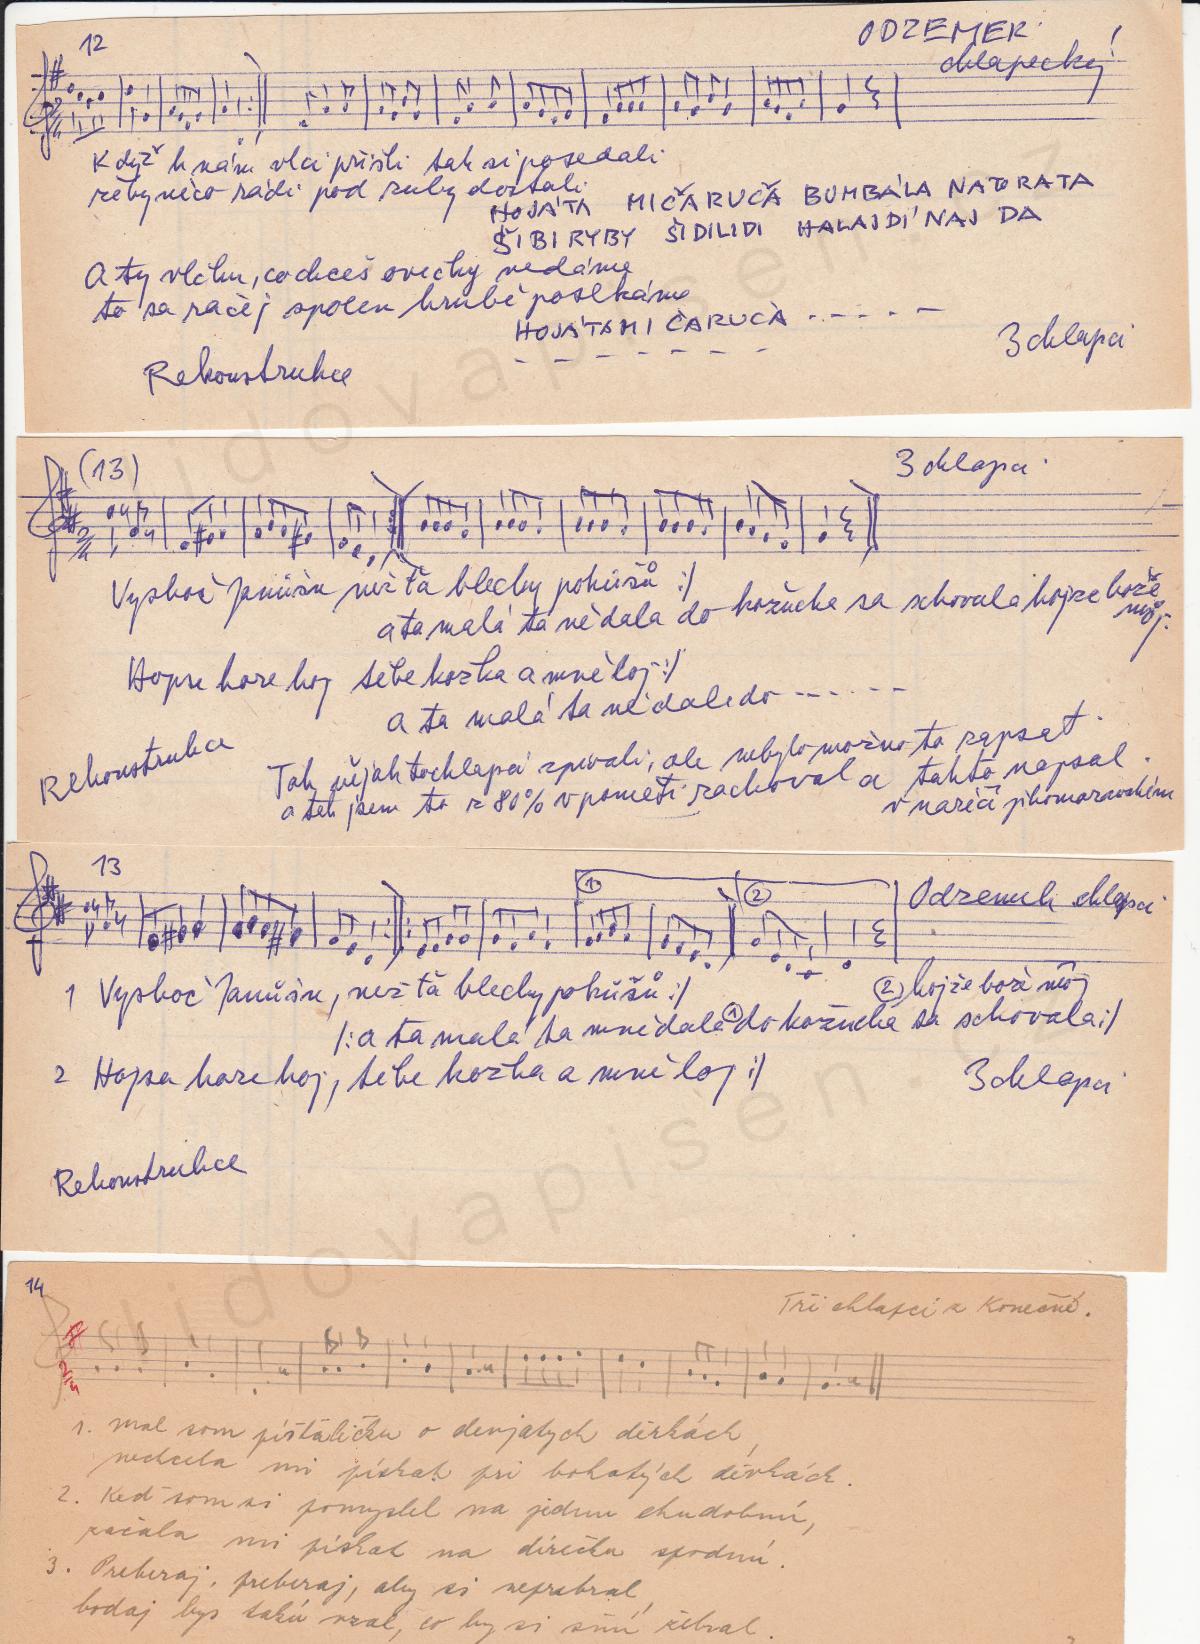 12
ODZEMEK
chlapecký!
Když k nám vlci přišli tak si posedali
žeby něco rádi pod zuby dostali
HOJÁTA MIČARUČÁ BUMBÁLA NATORATA
ŠIBIRYBY ŠIDILIDI HALAJDÍ NAJ DA
A ty vlčku, co chceš ovečky nedáme
to sa račej spolen hrubě posekáme
HOJÁTAMI ČARUČÁ - - - - -
- - - - - - -
3 chlapci
Rekonstrukce
(13)
3 chlapci
Vyskoč Janíšku než ťa blechy pokúšú :/
a ta malá ta nédala do kožucha sa schovala hojze bože
můj.
Hopse hore hoj tebe kozka a mně loj :/
a ta malá ta nédala do - - - - - -
Rekonstrukce
Tak nějak to chlapci zpívali, ale nebylo možno to zapsat
a tak jsem to z 80% v paměti zachoval a takto napsal.
v nářečí jihomoravském
13
1
2
Odzemek chlapci
1 Vyskoč Janíšku, než ťa blechy pokúšú :/
2 hojže bože můj
/: a ta malá ta mnědala 1 do kožucha sa schovala :/
2 Hopsa hore hoj, tebe kozka a mně loj :/
3 chlapci
Rekonstrukce
14
Tři chlapci z Konečné.
1. mal som píšťaličku o devjatych dírkách,
nechcela mi pískat pri bohatých dívkách.
2. Keď som si pomyslel na jednu chudobnú,
začala mi pískat na dírečku spodnú.
3. Preberaj, preberaj, aby si neprebral,
bodaj bys takú vzal, čo by si s ňú žebral.